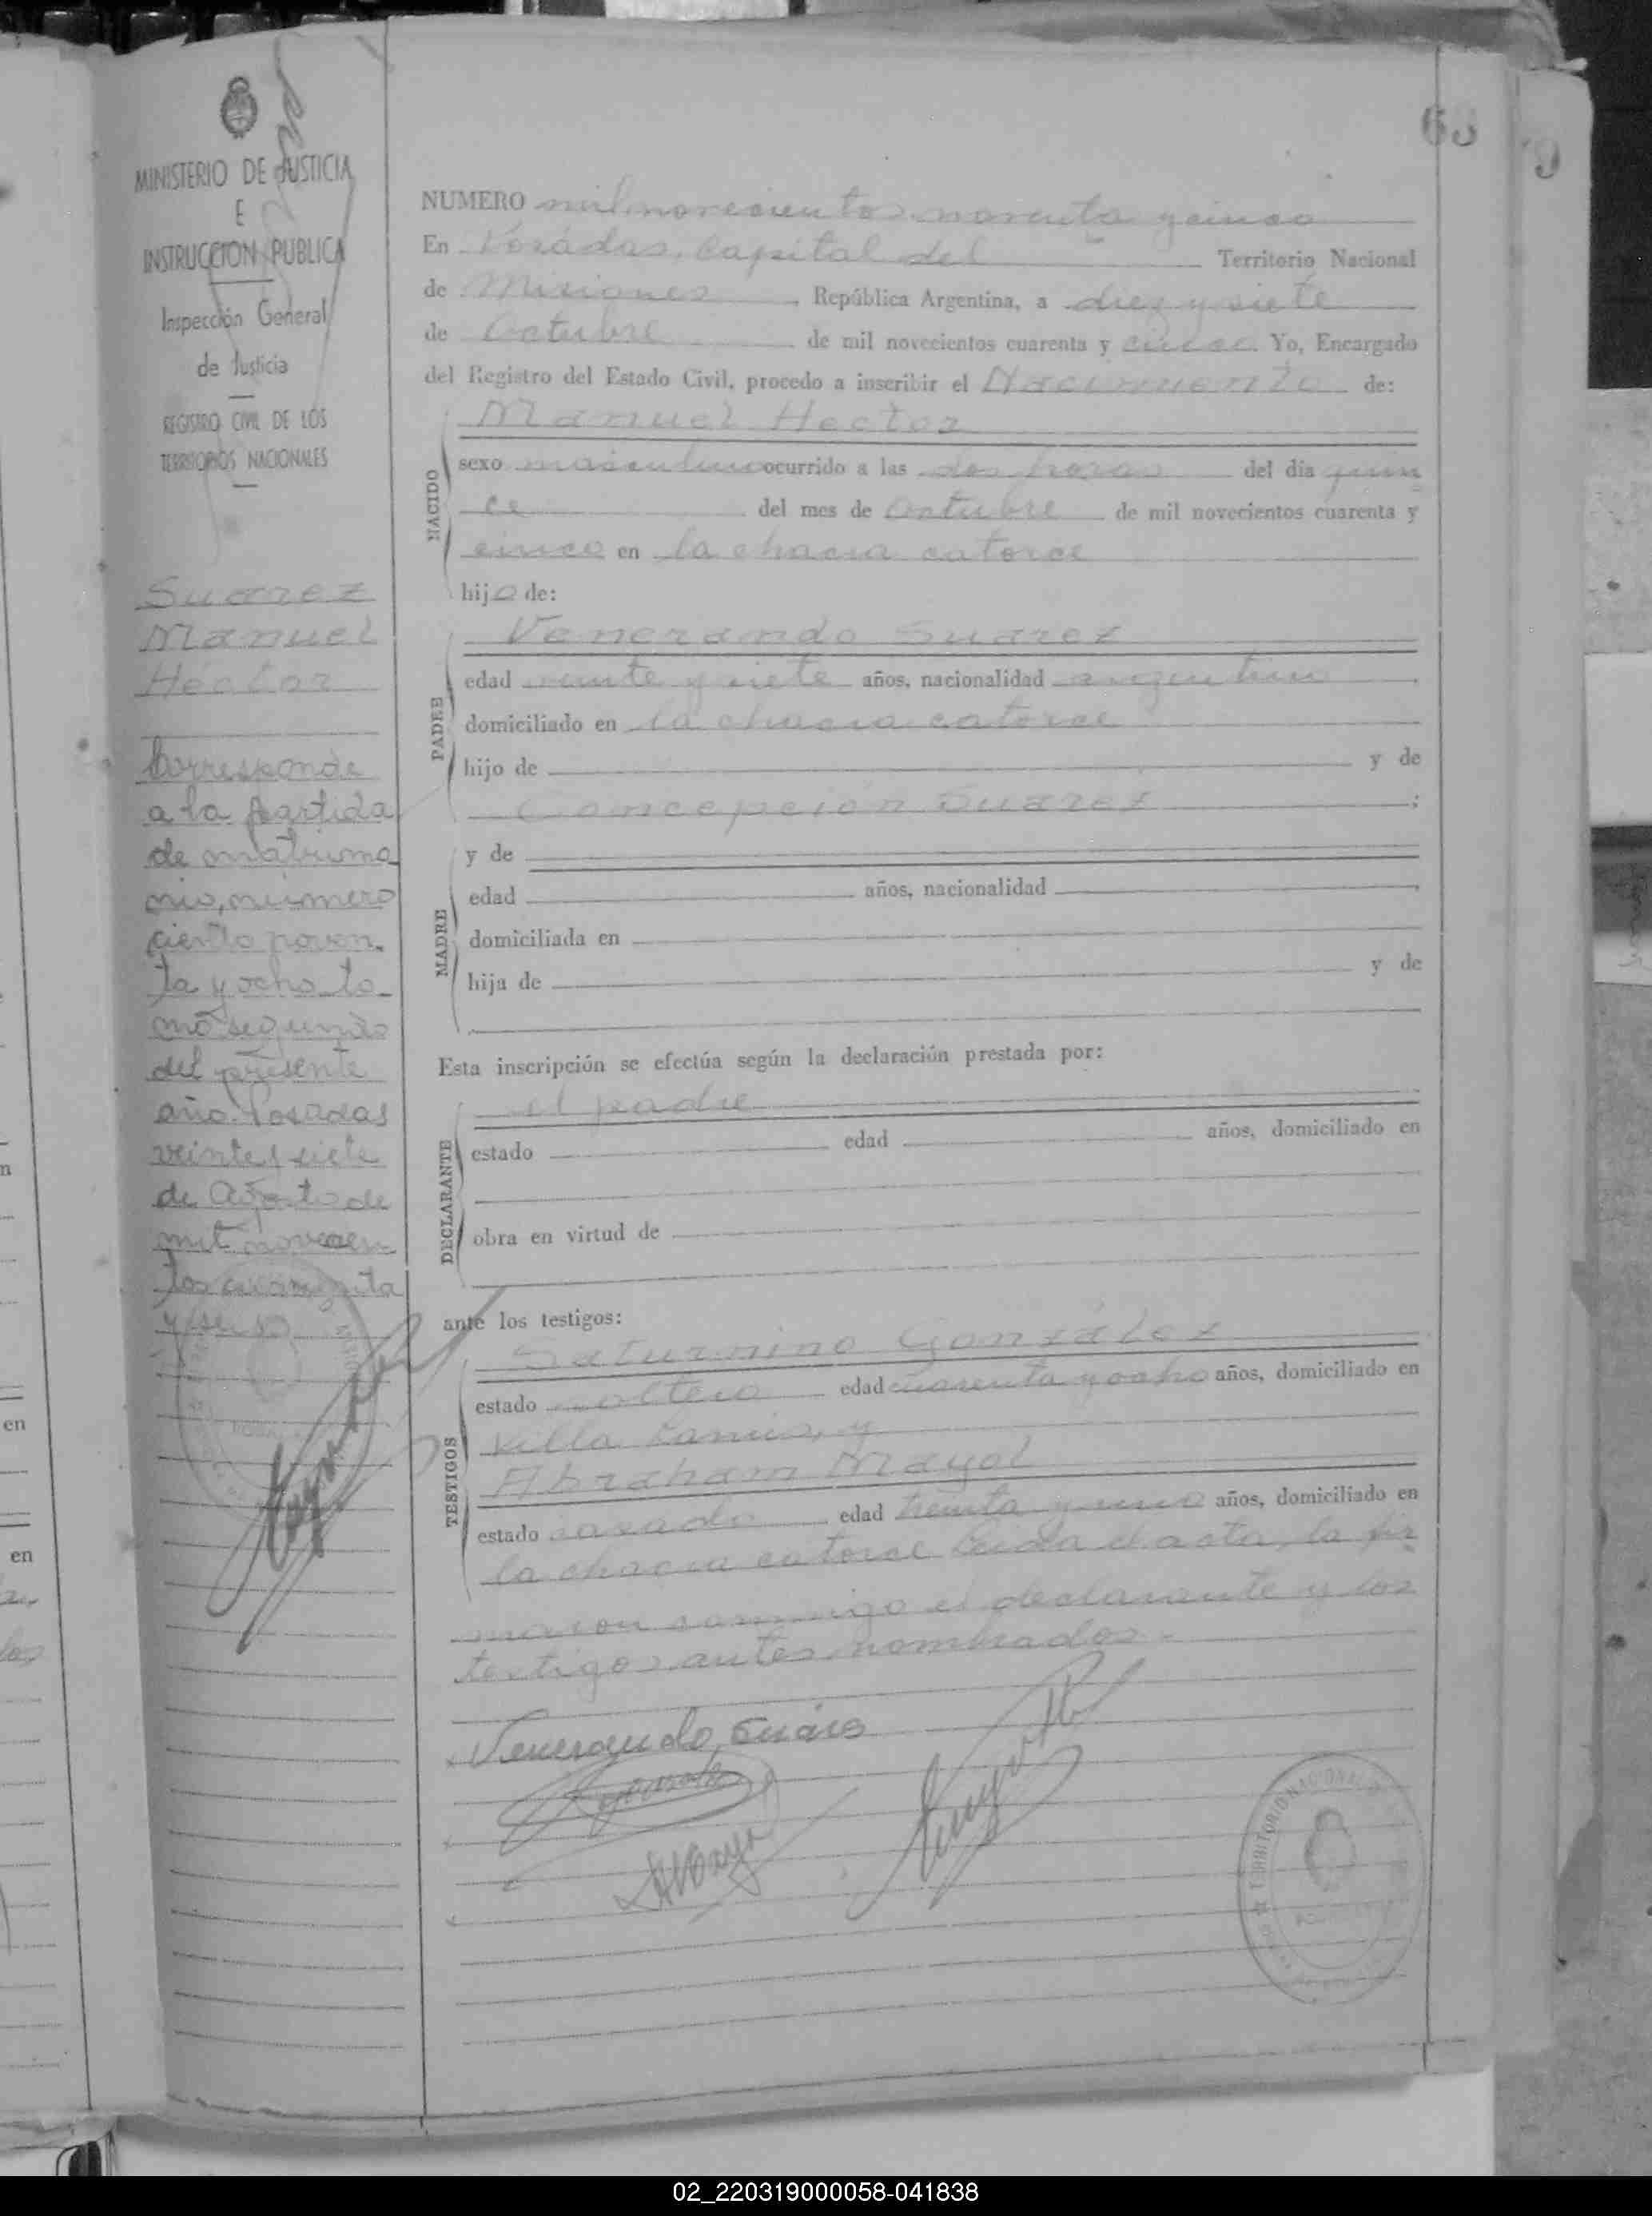 MINISTERIO DE JUSTICIA
E
INSTRUCCION PUBLICA
Inspección General
de Justicia
REGISTRO CIVIL DE LOS
TERRITORIOS NACIONALES
Suarez
Manuel
Héctor
Corresponde
a la partida
de matrimo
nio, número
ciento noven-
ta y ocho to-
mo segundo
del presente
año. Posadas
veinte y siete
de Agosto de
mil novecien
tos cincuenta
y seis
63
NUMERO mil novecientos noventa y cinco
En Posadas, Capital del Territorio Nacional
de Misiones, República Argentina, a diez y siete
de Octubre de mil novecientos cuarenta y cinco. Yo, Encargado
del Registro del Estado Civil, procedo a inscribir el Nacimiento de:
Manuel Hector
NACIDO
sexo masculino ocurrido a las dos horas del día quin
ce del mes de Octubre de mil novecientos cuarenta y
cinco en la chacra catorce
hijo de:
Venerando Suarez
PADRE
edad veinte y siete años, nacionalidad argentino,
domiciliado en la chacra catorce
hijo de y de
Concepción Suarez;
y de
MADRE
edad años, nacionalidad
domiciliada en
hija de y de
Esta inscripción se efectúa según la declaración prestada por:
el padre
DECLARANTE
estado edad años, domiciliado en
obra en virtud de
ante los testigos:
Saturnino González
TESTIGOS
estado soltero edad cuarenta y ocho años, domiciliado en
Villa Lanús, y
Abraham Mayol
estado casado edad treinta y uno años, domiciliado en
la chacra catorce Leida el acta, la fir
maron conmigo el declarante y los
testigos antes nombrados.-
Venerando Suáres
TERRITORIO NACIONAL
02_220319000058-041838